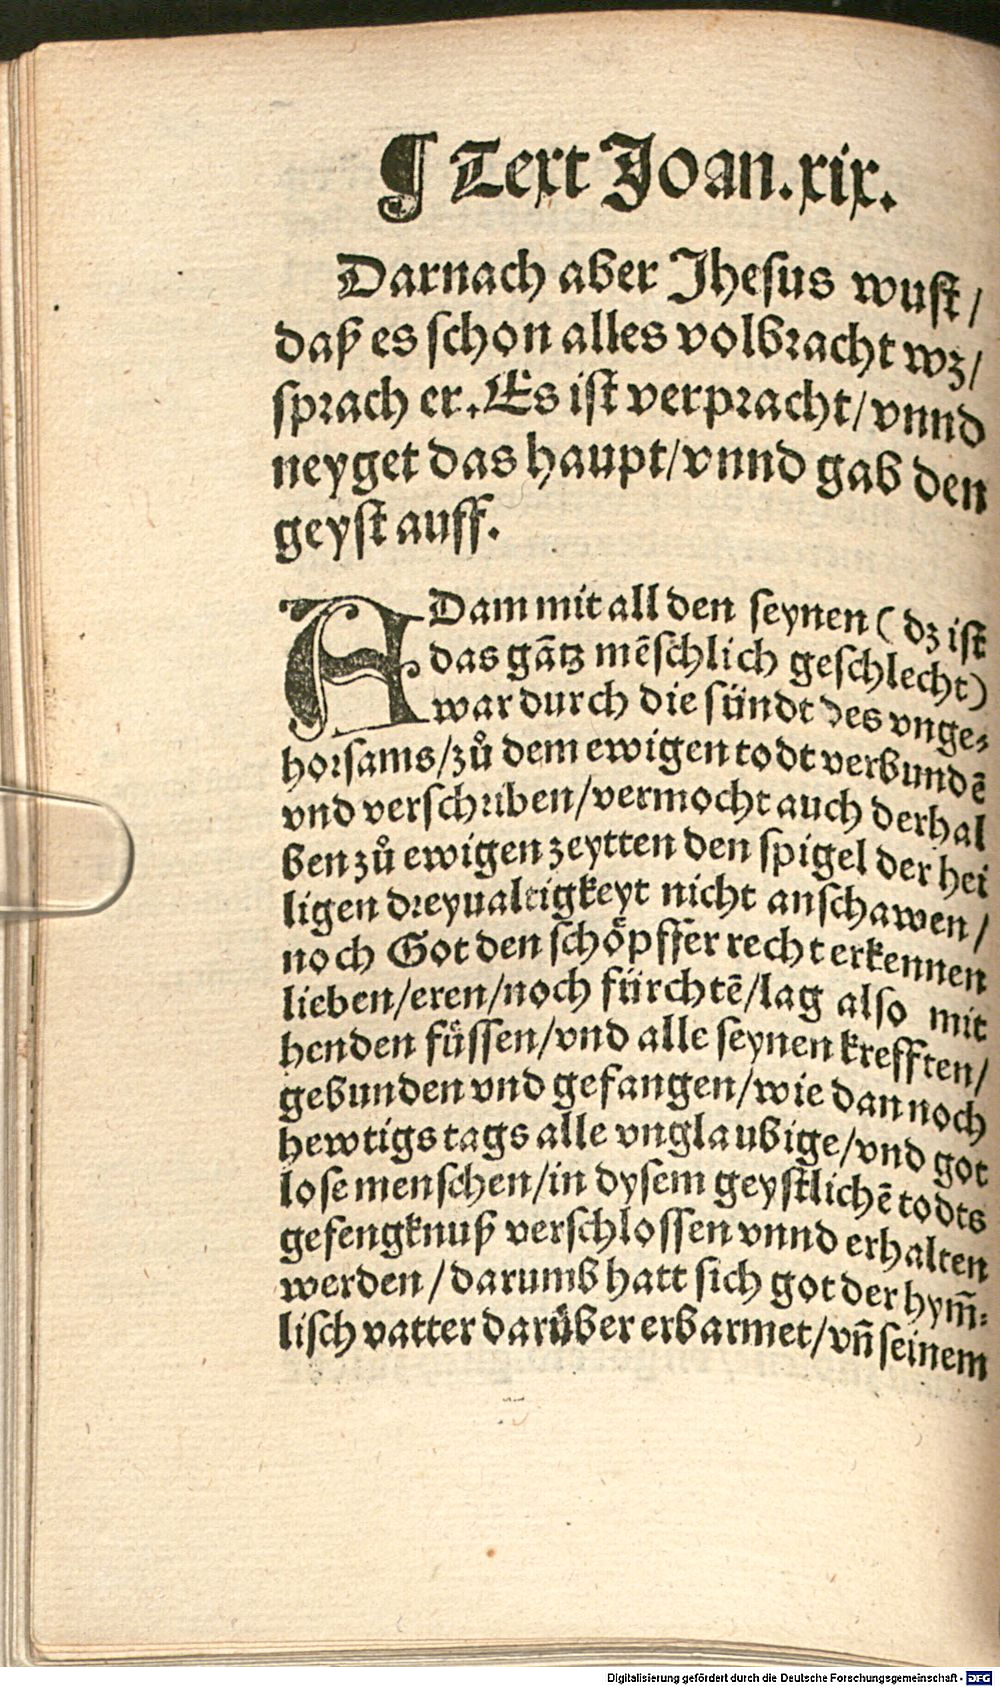 ¶ Text Joan. xix.
Darnach aber Jhesus wust /
daß es schon alles volbracht wz /
sprach er. Es ist verpracht / vnnd
neyget das haupt / vnnd gab den
geyst auff.
ADam mit all den seynen ( dz ist
das gātz mēschlich geschlecht )
war durch die sündt des vnge-
horsams / zů dem ewigen todt verbundē
vnd verschriben / vermocht auch derhal
ben zů ewigen zeytten den spigel der hei
ligen dreyualtigkeyt nicht anschawen /
noch Got den schöpffer recht erkennen
lieben / eren / noch fürchtē / lag also mit
henden füssen / vnd alle seynen krefften /
gebunden vnd gefangen / wie dan noch
hewtigs tags alle vnglaubige / vnd got
lose menschen / in dysem geystlichē todts
gefengknuß verschlossen vnnd erhalten
werden / darumb hatt sich got der hym̄-
lisch vatter darüber erbarmet / vñ seinem
Digitalisierung gefördert durch die Deutsche Forschungsgemeinschaft - DFG